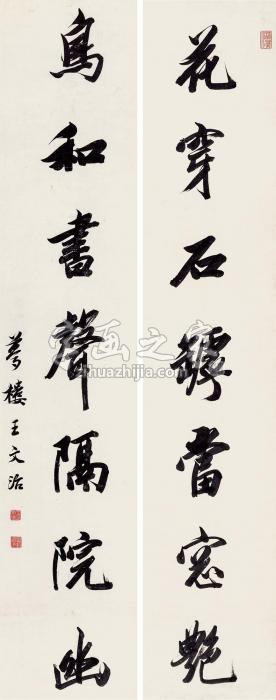 花穿石罅當窓艶
鳥和書聲隔院幽
夢樓王文治
字画之家
huazhijia.com